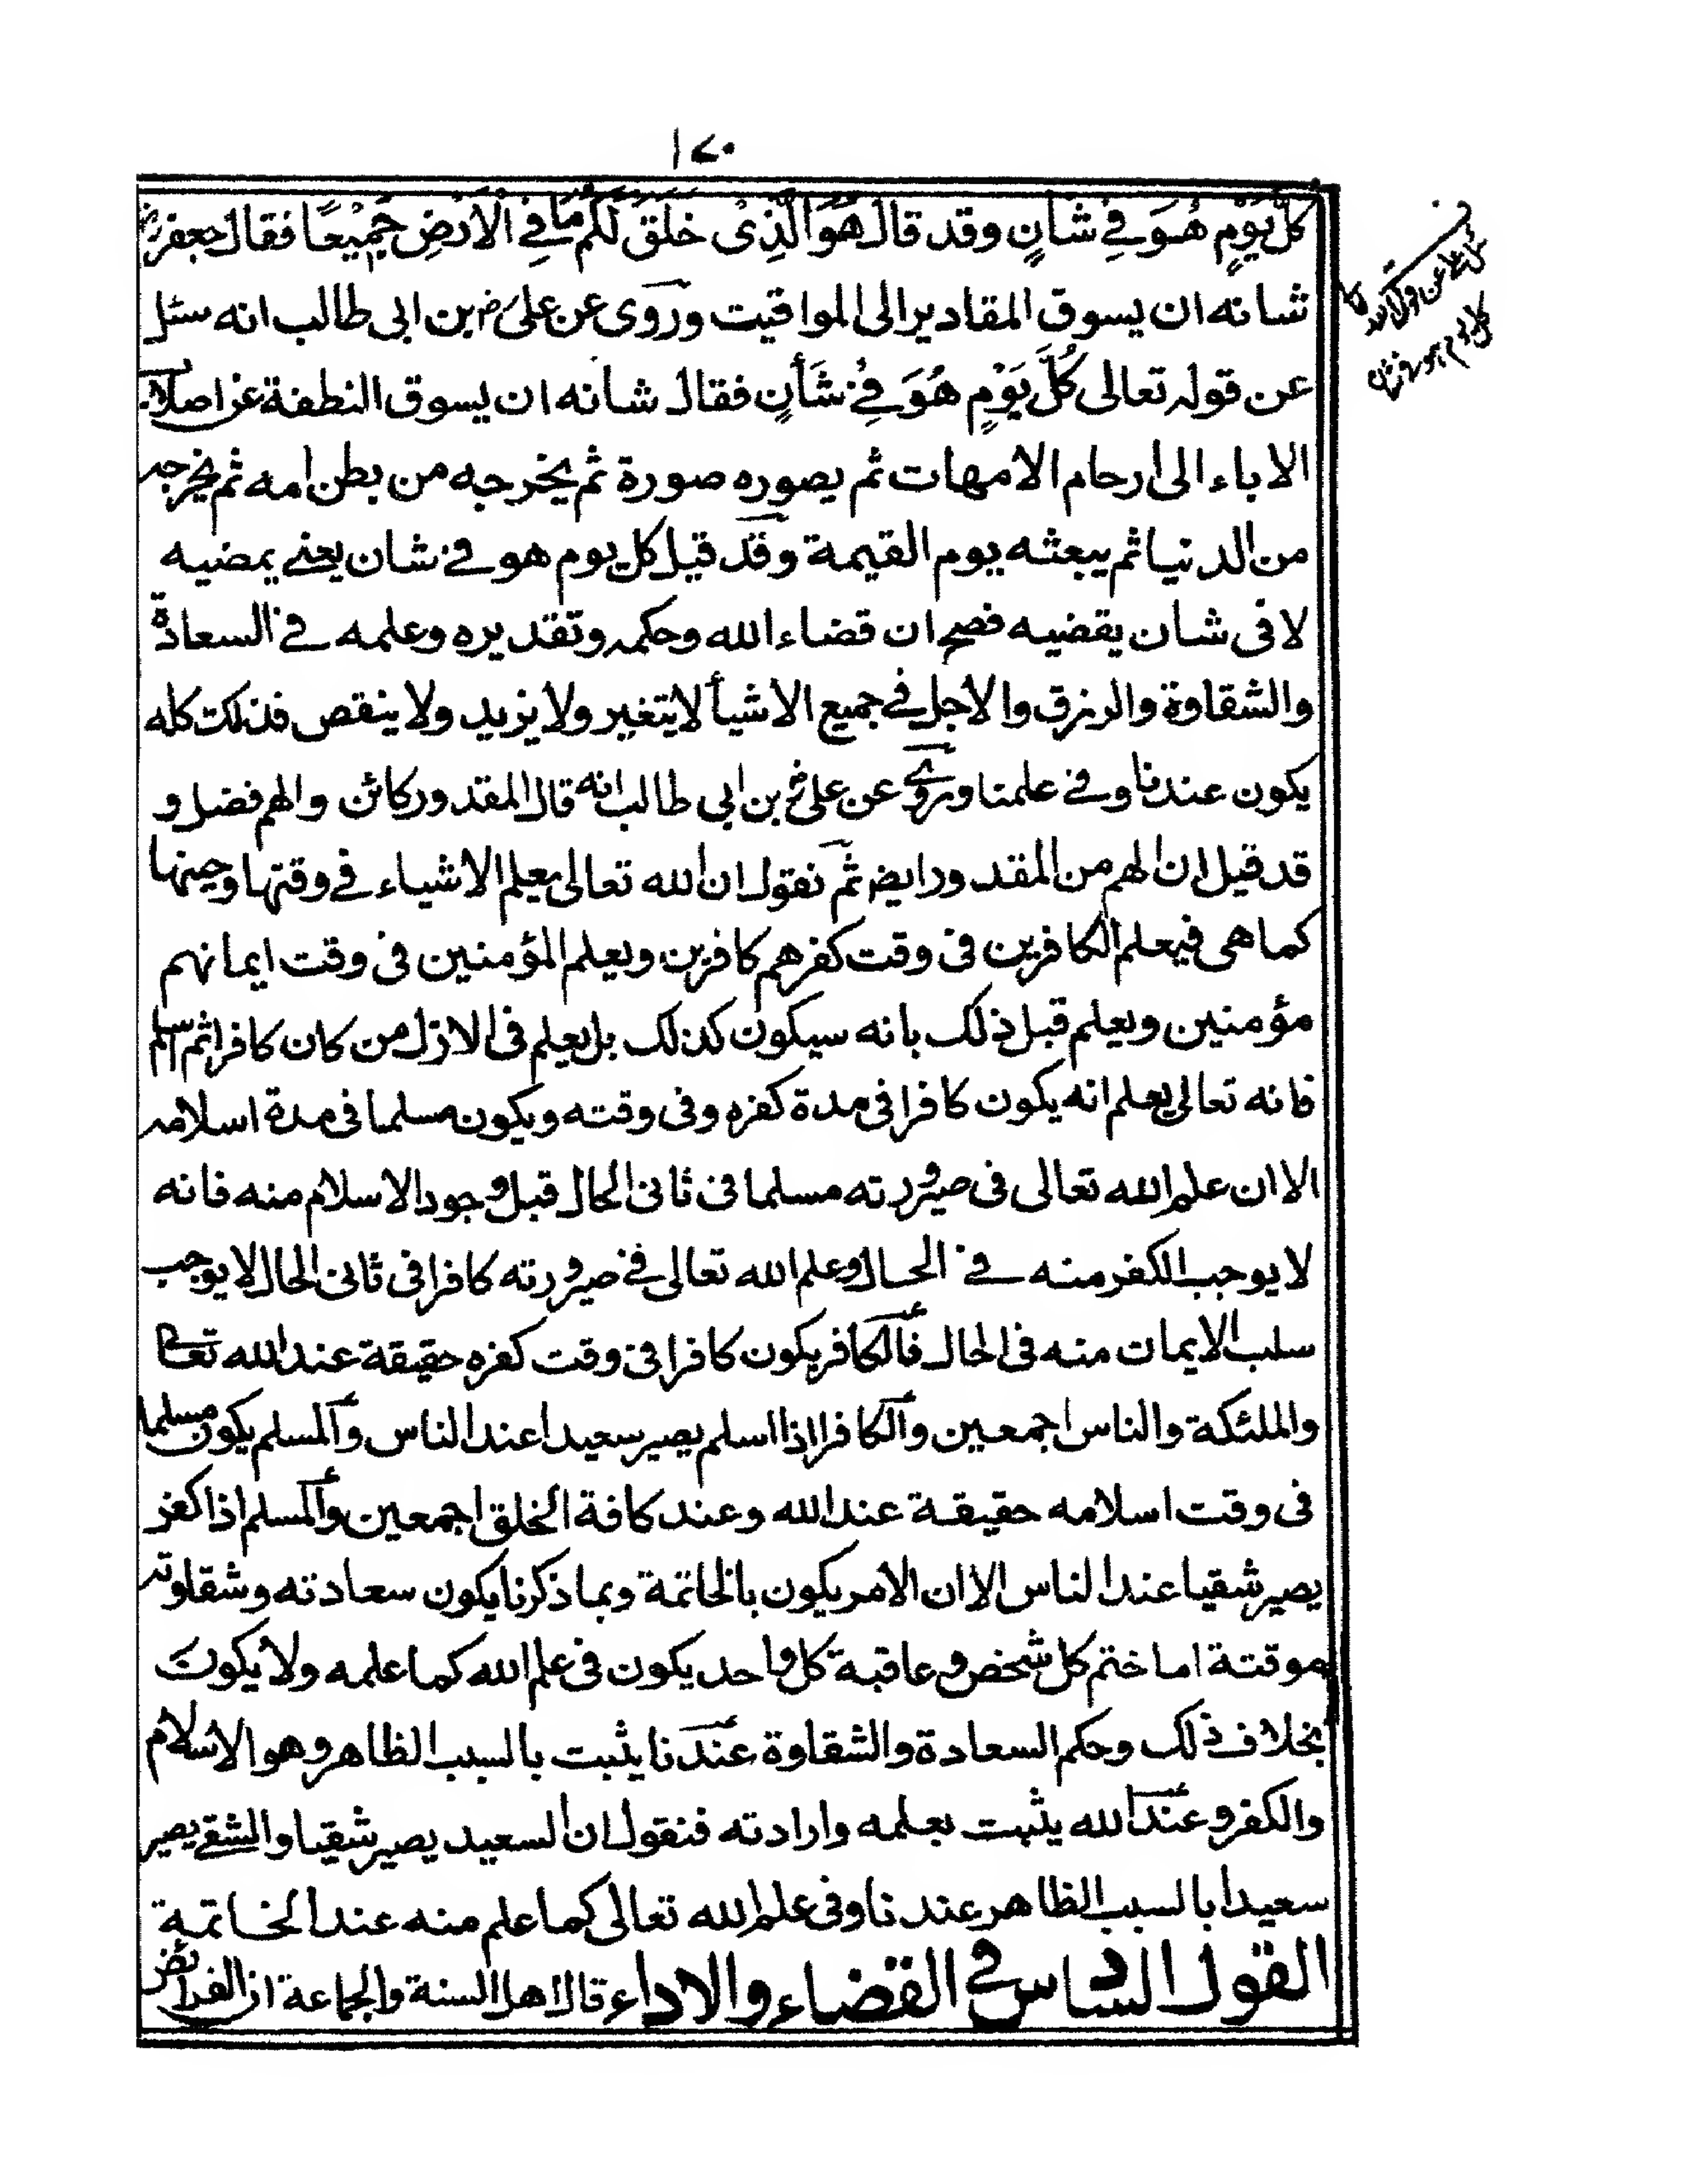 ١٧٠
كُلَّ يَوْمٍ هُوَ فِي شَانٍ وقد قال هُوَ الَّذِىْ خَلَقَ لَكُمْ مَّا فِي الْاَرْضِ جَمِيْعًا فقال جعفرؓ
شانه ان يسوق المقادير الى المواقيت وروى عن علىؓ بن ابى طالب انه سئل
عن قوله تعالى كُلَّ يَوْمٍ هُوَ فِىْ شَأنٍ فقال شانه ان يسوق النطفة عن اصلاب
الاباء الى ارحام الامهات ثم يصوره صورة ثم يخرجه من بطن امه ثم يخرجه
من الدنيا ثم يبعثه يوم القيمة وقد قيل كل يوم هو فى شان يعنى يمضيه
لا فى شان يقضيه فصح ان قضاء الله وحكمه وتقديره وعلمه فى السعادة
والشقاوة والرزق والاجل فى جميع الاشيأ لا يتغير ولا يزيد ولا ينقص فذلك كله
يكون عندنا وفى علمنا وروى عن علىؓ بن ابى طالب انه قال المقدور كائن والهم فضل و
قد قيل ان الهم من المقدور ايض ثم نقول ان الله تعالى يعلم الاشياء فى وقتها وحينها
كما هى فيعلم الكافرين فى وقت كفرهم كافرين ويعلم المؤمنين فى وقت ايمانهم
مؤمنين ويعلم قبل ذلك بانه سيكون كذلك بل يعلم فى الازل من كان كافرا ثم اسلم
فانه تعالى يعلم انه يكون كافرا فى مدة كفره وفى وقته ويكون مسلما فى مدة اسلامه
الا ان علم الله تعالى فى صيرورته مسلما فى ثانى الحال قبل وجود الاسلام منه فانه
لا يوجب الكفر منه فى الحال وعلم الله تعالى فى صيرورته كافرا فى ثانى الحال لا يوجب
سلب الايمان منه فى الحال فالكافر يكون كافرا فى وقت كفره حقيقة عند الله تعالى
والملئكة والناس اجمعين والكافر اذا اسلم يصير سعيدا عند الناس والمسلم يكون مسلما
فى وقت اسلامه حقيقة عند الله وعند كافة الخلق اجمعين والمسلم اذا كفر
يصير شقيا عند الناس الا ان الامر يكون بالخاتمة وبما ذكرنا يكون سعادته وشقاوته
موقتة اما ختم كل شخص و عاقبة كل واحد يكون فى علم الله كما علمه ولا يكون
بخلاف ذلك وحكم السعادة والشقاوة عندنا يثبت بالسبب الظاهر وهو الاسلام
والكفر وعند الله يثبت بعلمه وارادته فنقول ان السعيد يصير شقيا والشقى يصير
سعيدا بالسبب الظاهر عندنا وفى علم الله تعالى كما علم منه عند الخاتمة
القول السادس فى القضاء والاداء قال اهل السنة والجماعة ان الفرائض